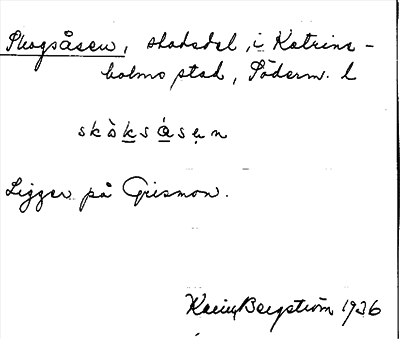 Skogsåsen, stadsdel i Katrine-
holms stad, Söderm. l
skòksásen
Ligger på Grismon.
Karin Bergström 1936